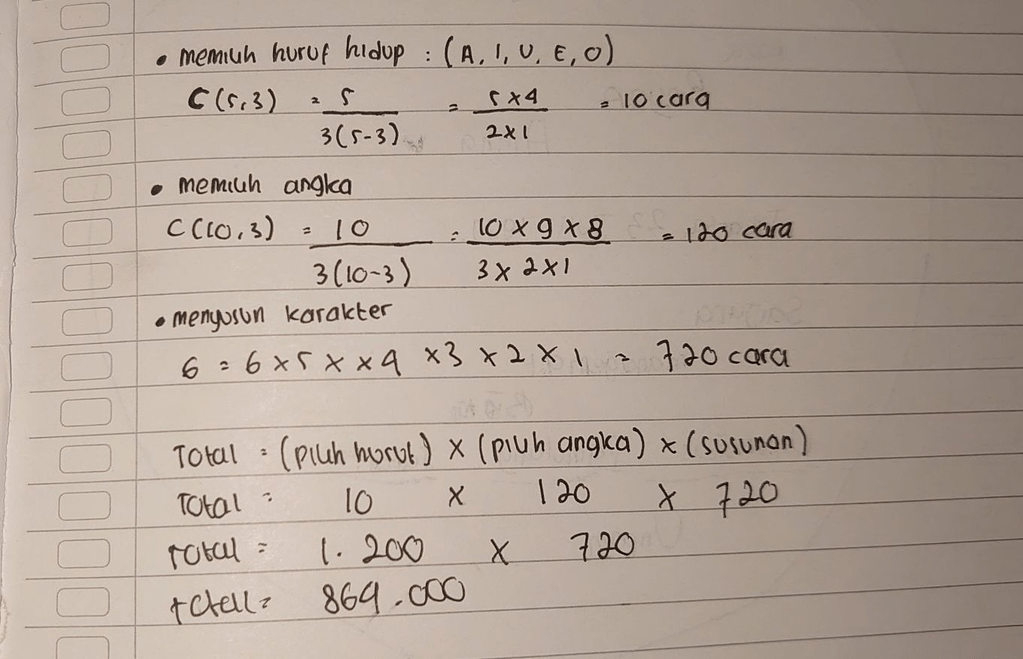 • memilih huruf hidup : (A, I, U, E, O)
C(5,3) = 5 = 5 x 4 = 10 cara
3(5-3) 2x1
• memilih angka
C(10,3) = 10 = 10 x 9 x 8 = 120 cara
3(10-3) 3x2x1
• menyusun karakter
6 = 6 x 5 x x 4 x 3 x 2 x 1 = 720 cara
Total = (pilih huruf) x (pilih angka) x (susunan)
Total = 10 x 120 x 720
Total = 1.200 x 720
total = 864.000